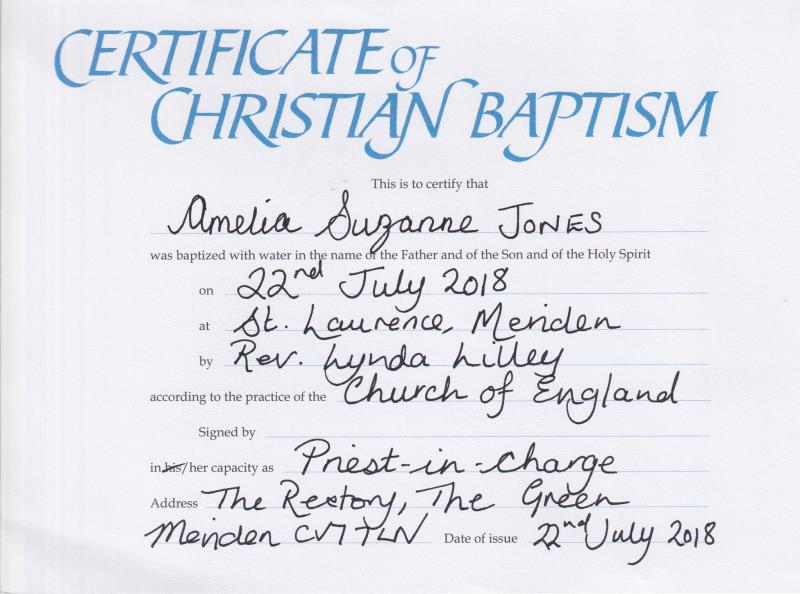 CERTIFICATE OF
CHRISTIAN BAPTISM
This is to certify that
Amelia Suzanne JONES
was baptized with water in the name of the Father and of the Son and of the Holy Spirit
on 22nd July 2018
at St. Laurence, Meriden
by Rev. Lynda Lilley
according to the practice of the Church of England
Signed by
in his/her capacity as Priest-in-Charge
Address The Rectory, The Green
Meriden CV7 7LN Date of issue 22nd July 2018